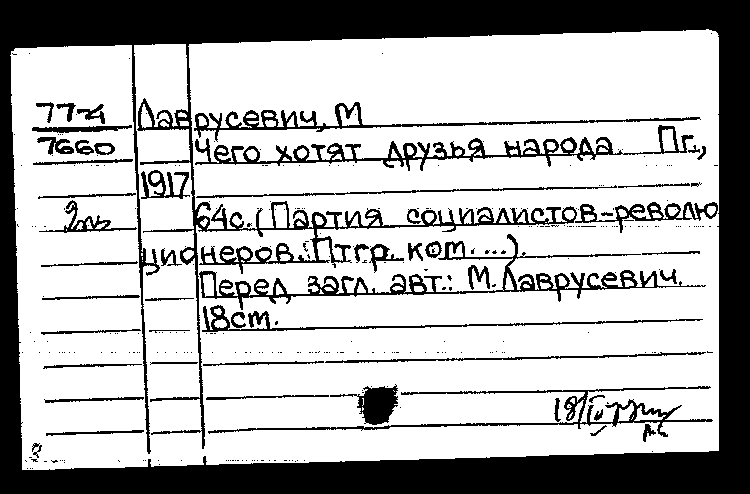 77-4 Лаврусевич, М
7660 Чего хотят друзья народа. Пг.,
1917
64с. (Партия социалистов-револю
ционеров. Птгр. ком. ...).
Перед загл. авт.: М. Лаврусевич.
18см.